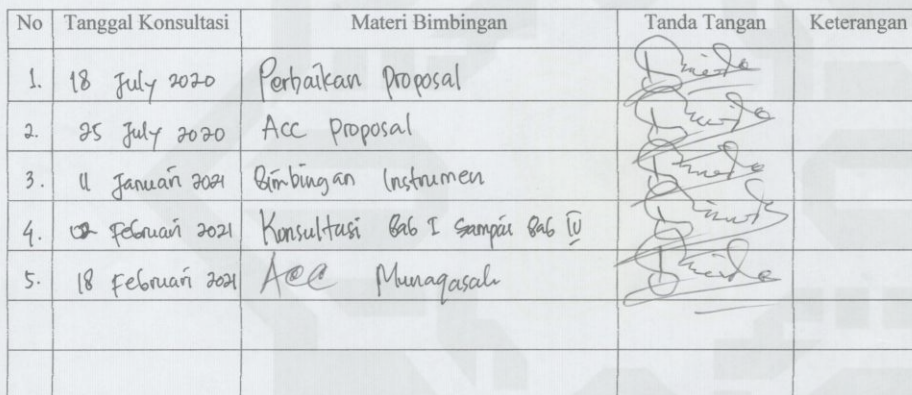 No Tanggal Konsultasi Materi Bimbingan Tanda Tangan Keterangan
1. 18 July 2020 Perbaikan Proposal
2. 25 July 2020 Acc Proposal
3. 11 Januari 2021 Bimbingan Instrumen
4. Februari 2021 Konsultasi Bab I Sampai Bab IV
5. 18 Februari 2021 Acc Munaqasah